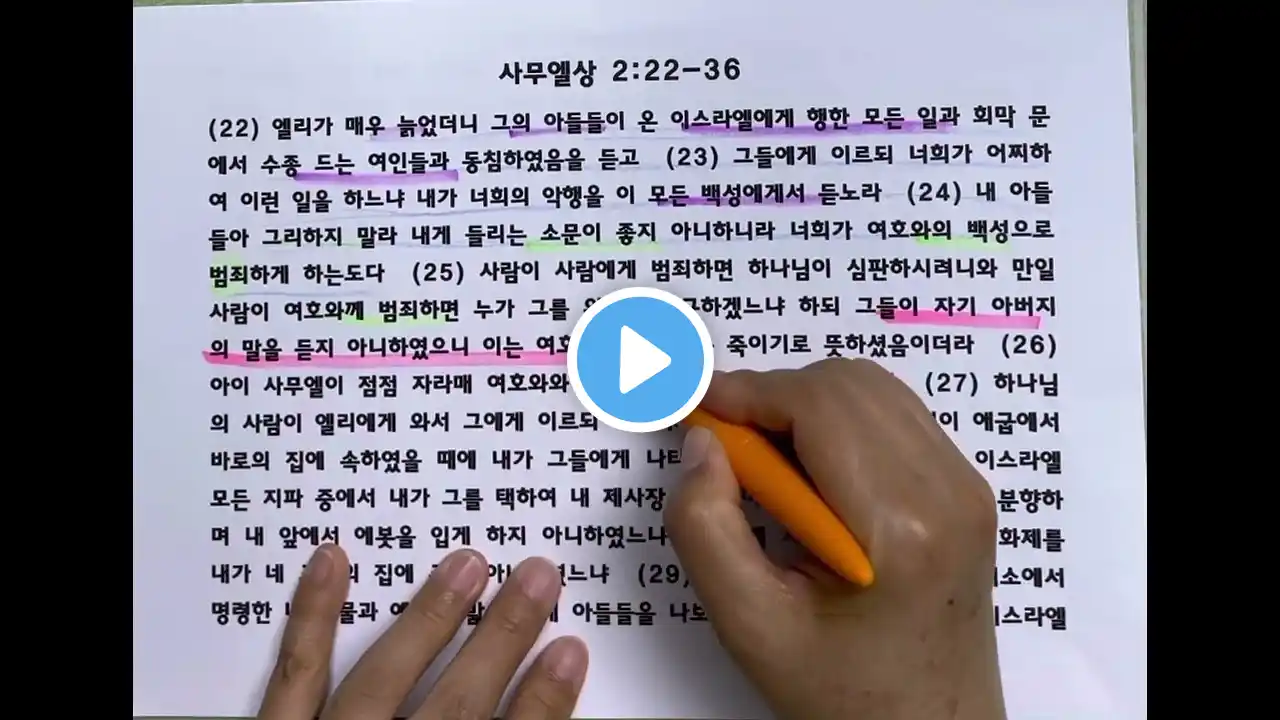 사무엘상 2:22-36
(22) 엘리가 매우 늙었더니 그의 아들들이 온 이스라엘에게 행한 모든 일과 회막 문
에서 수종 드는 여인들과 동침하였음을 듣고 (23) 그들에게 이르되 너희가 어찌하
여 이런 일을 하느냐 내가 너희의 악행을 이 모든 백성에게서 듣노라 (24) 내 아들
들아 그리하지 말라 내게 들리는 소문이 좋지 아니하니라 너희가 여호와의 백성으로
범죄하게 하는도다 (25) 사람이 사람에게 범죄하면 하나님이 심판하시려니와 만일
사람이 여호와께 범죄하면 누가 그를 하겠느냐 하되 그들이 자기 아버지
의 말을 듣지 아니하였으니 이는 죽이기로 뜻하셨음이더라 (26)
아이 사무엘이 점점 자라매 여호와와 (27) 하나님
의 사람이 엘리에게 와서 그에게 이르되 애굽에서
바로의 집에 속하였을 때에 내가 그들에게 이스라엘
모든 지파 중에서 내가 그를 택하여 내 제사장 분향하
며 내 앞에서 에봇을 입게 하지 아니하였느냐 화제를
내가 네 집에 (29)
명령한 아들들을